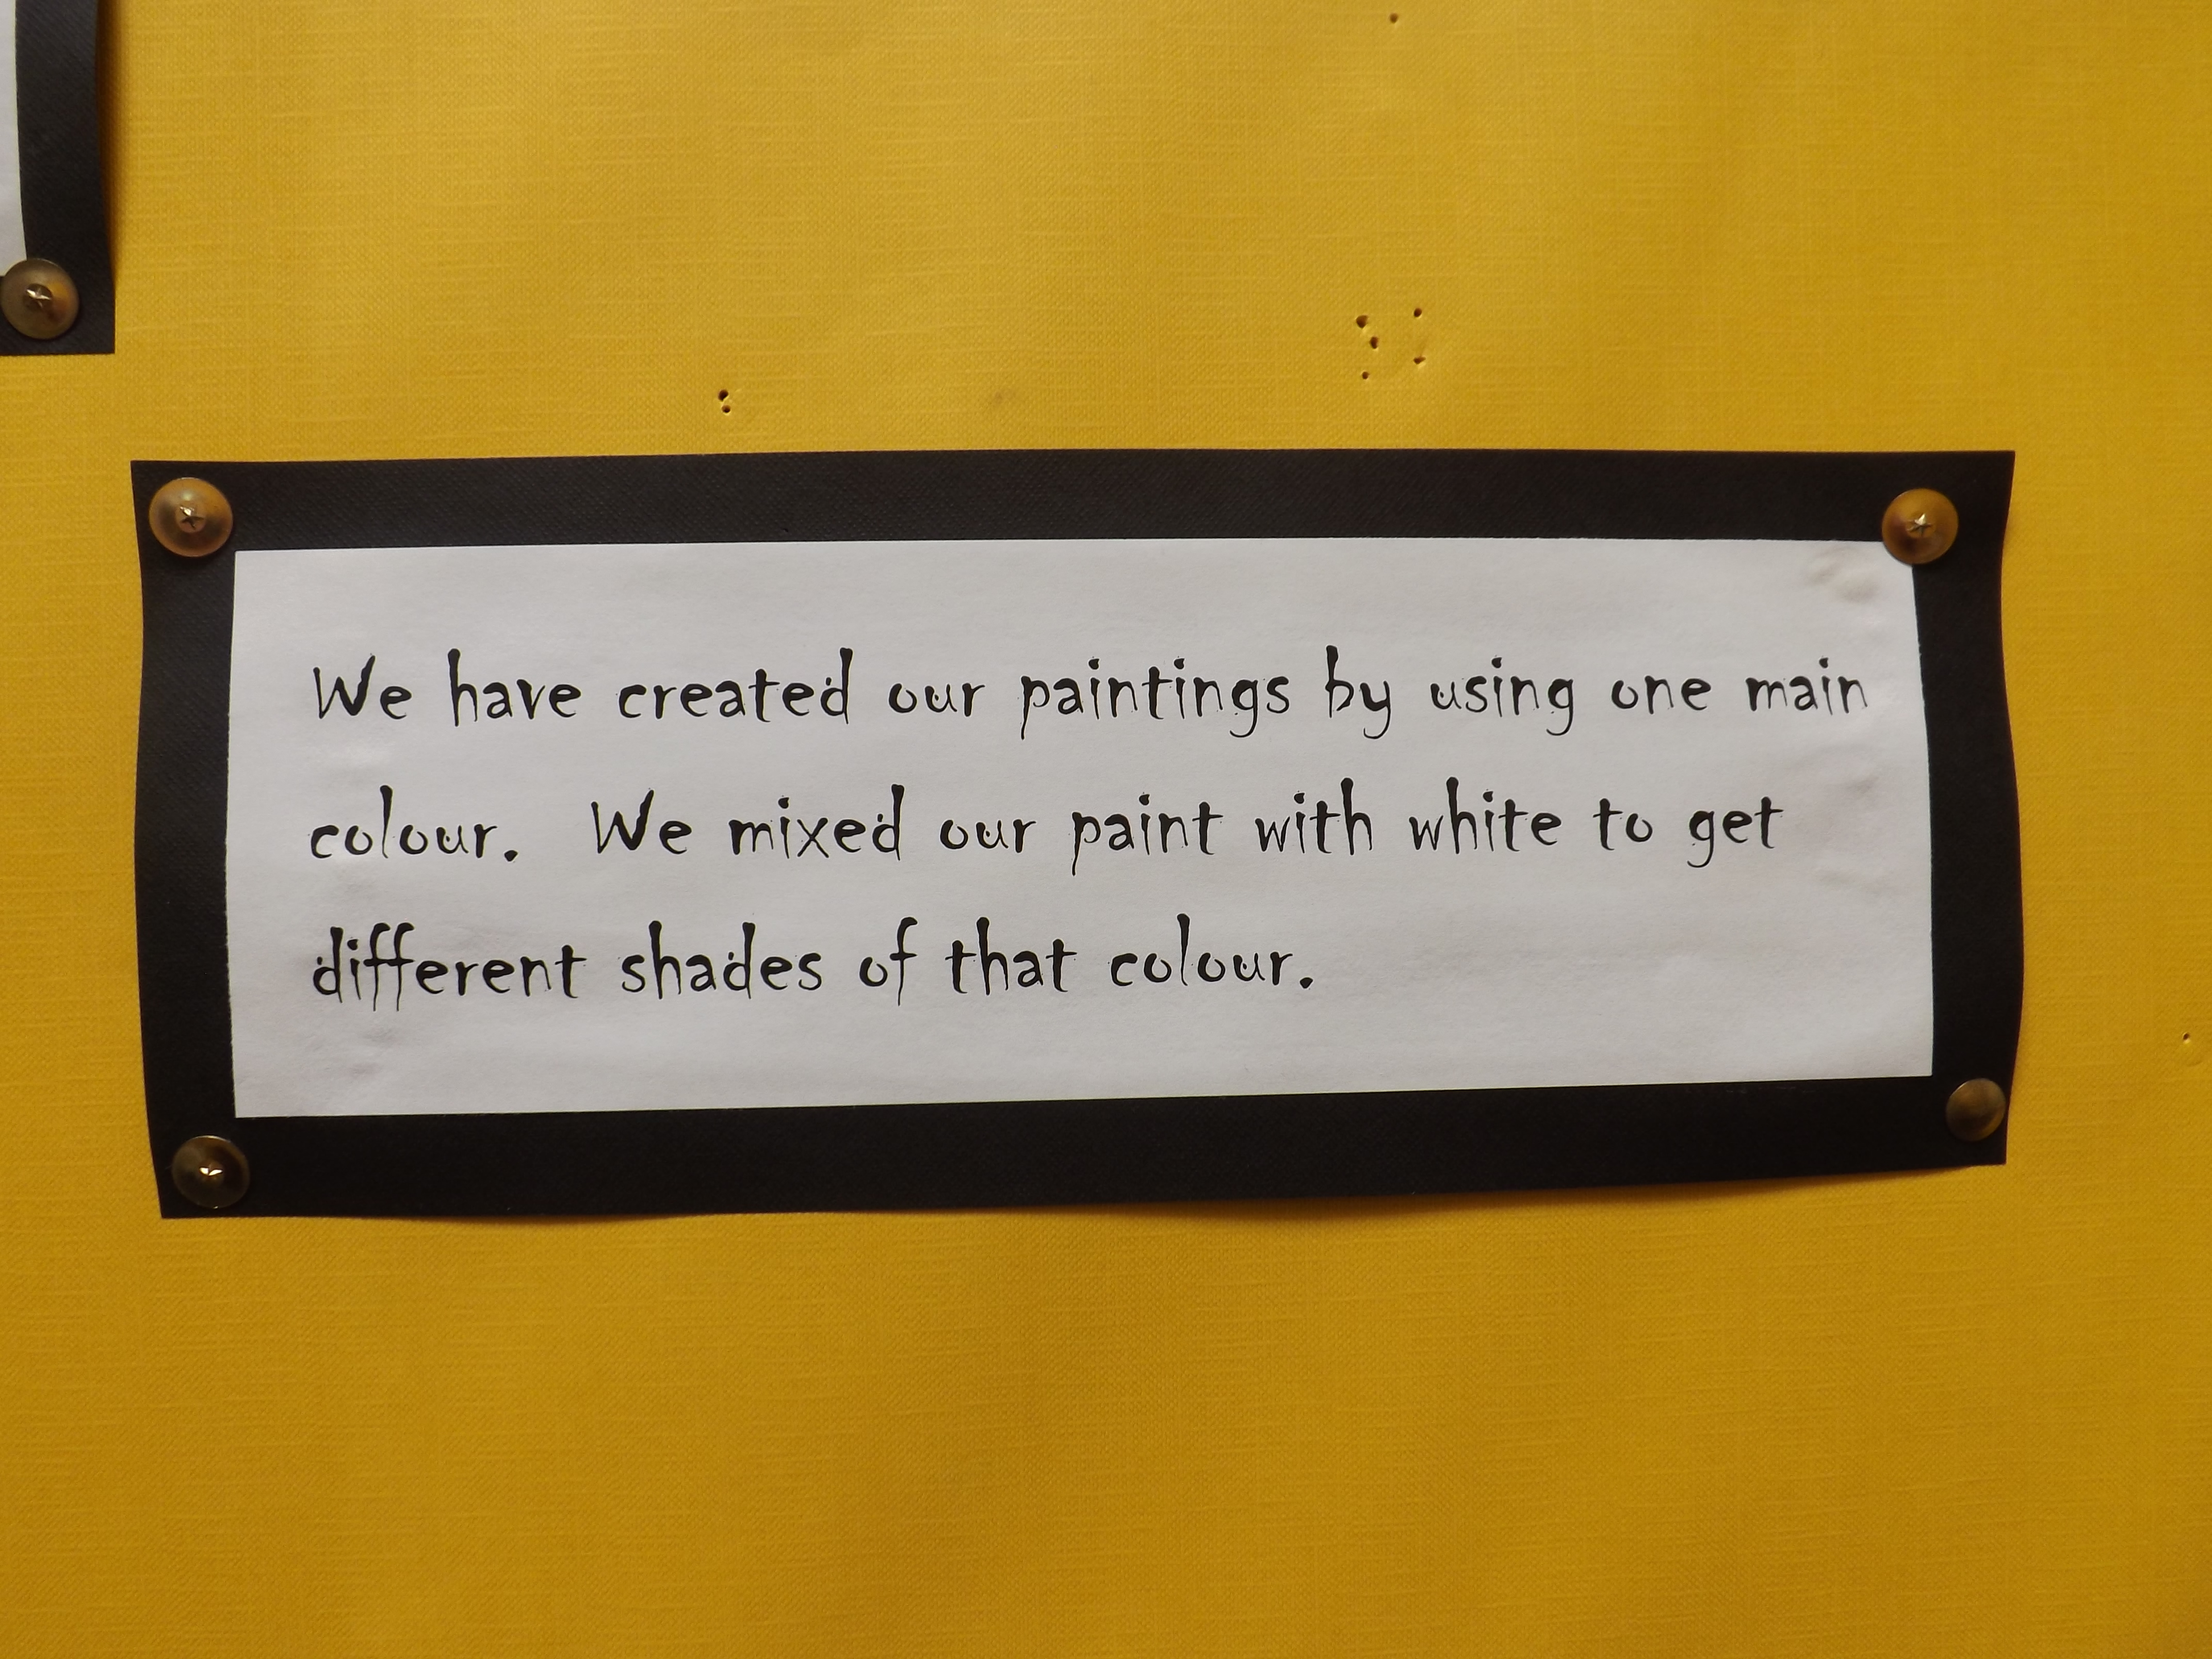 We have created our paintings by using one main
colour. We mixed our paint with white to get
different shades of that colour.